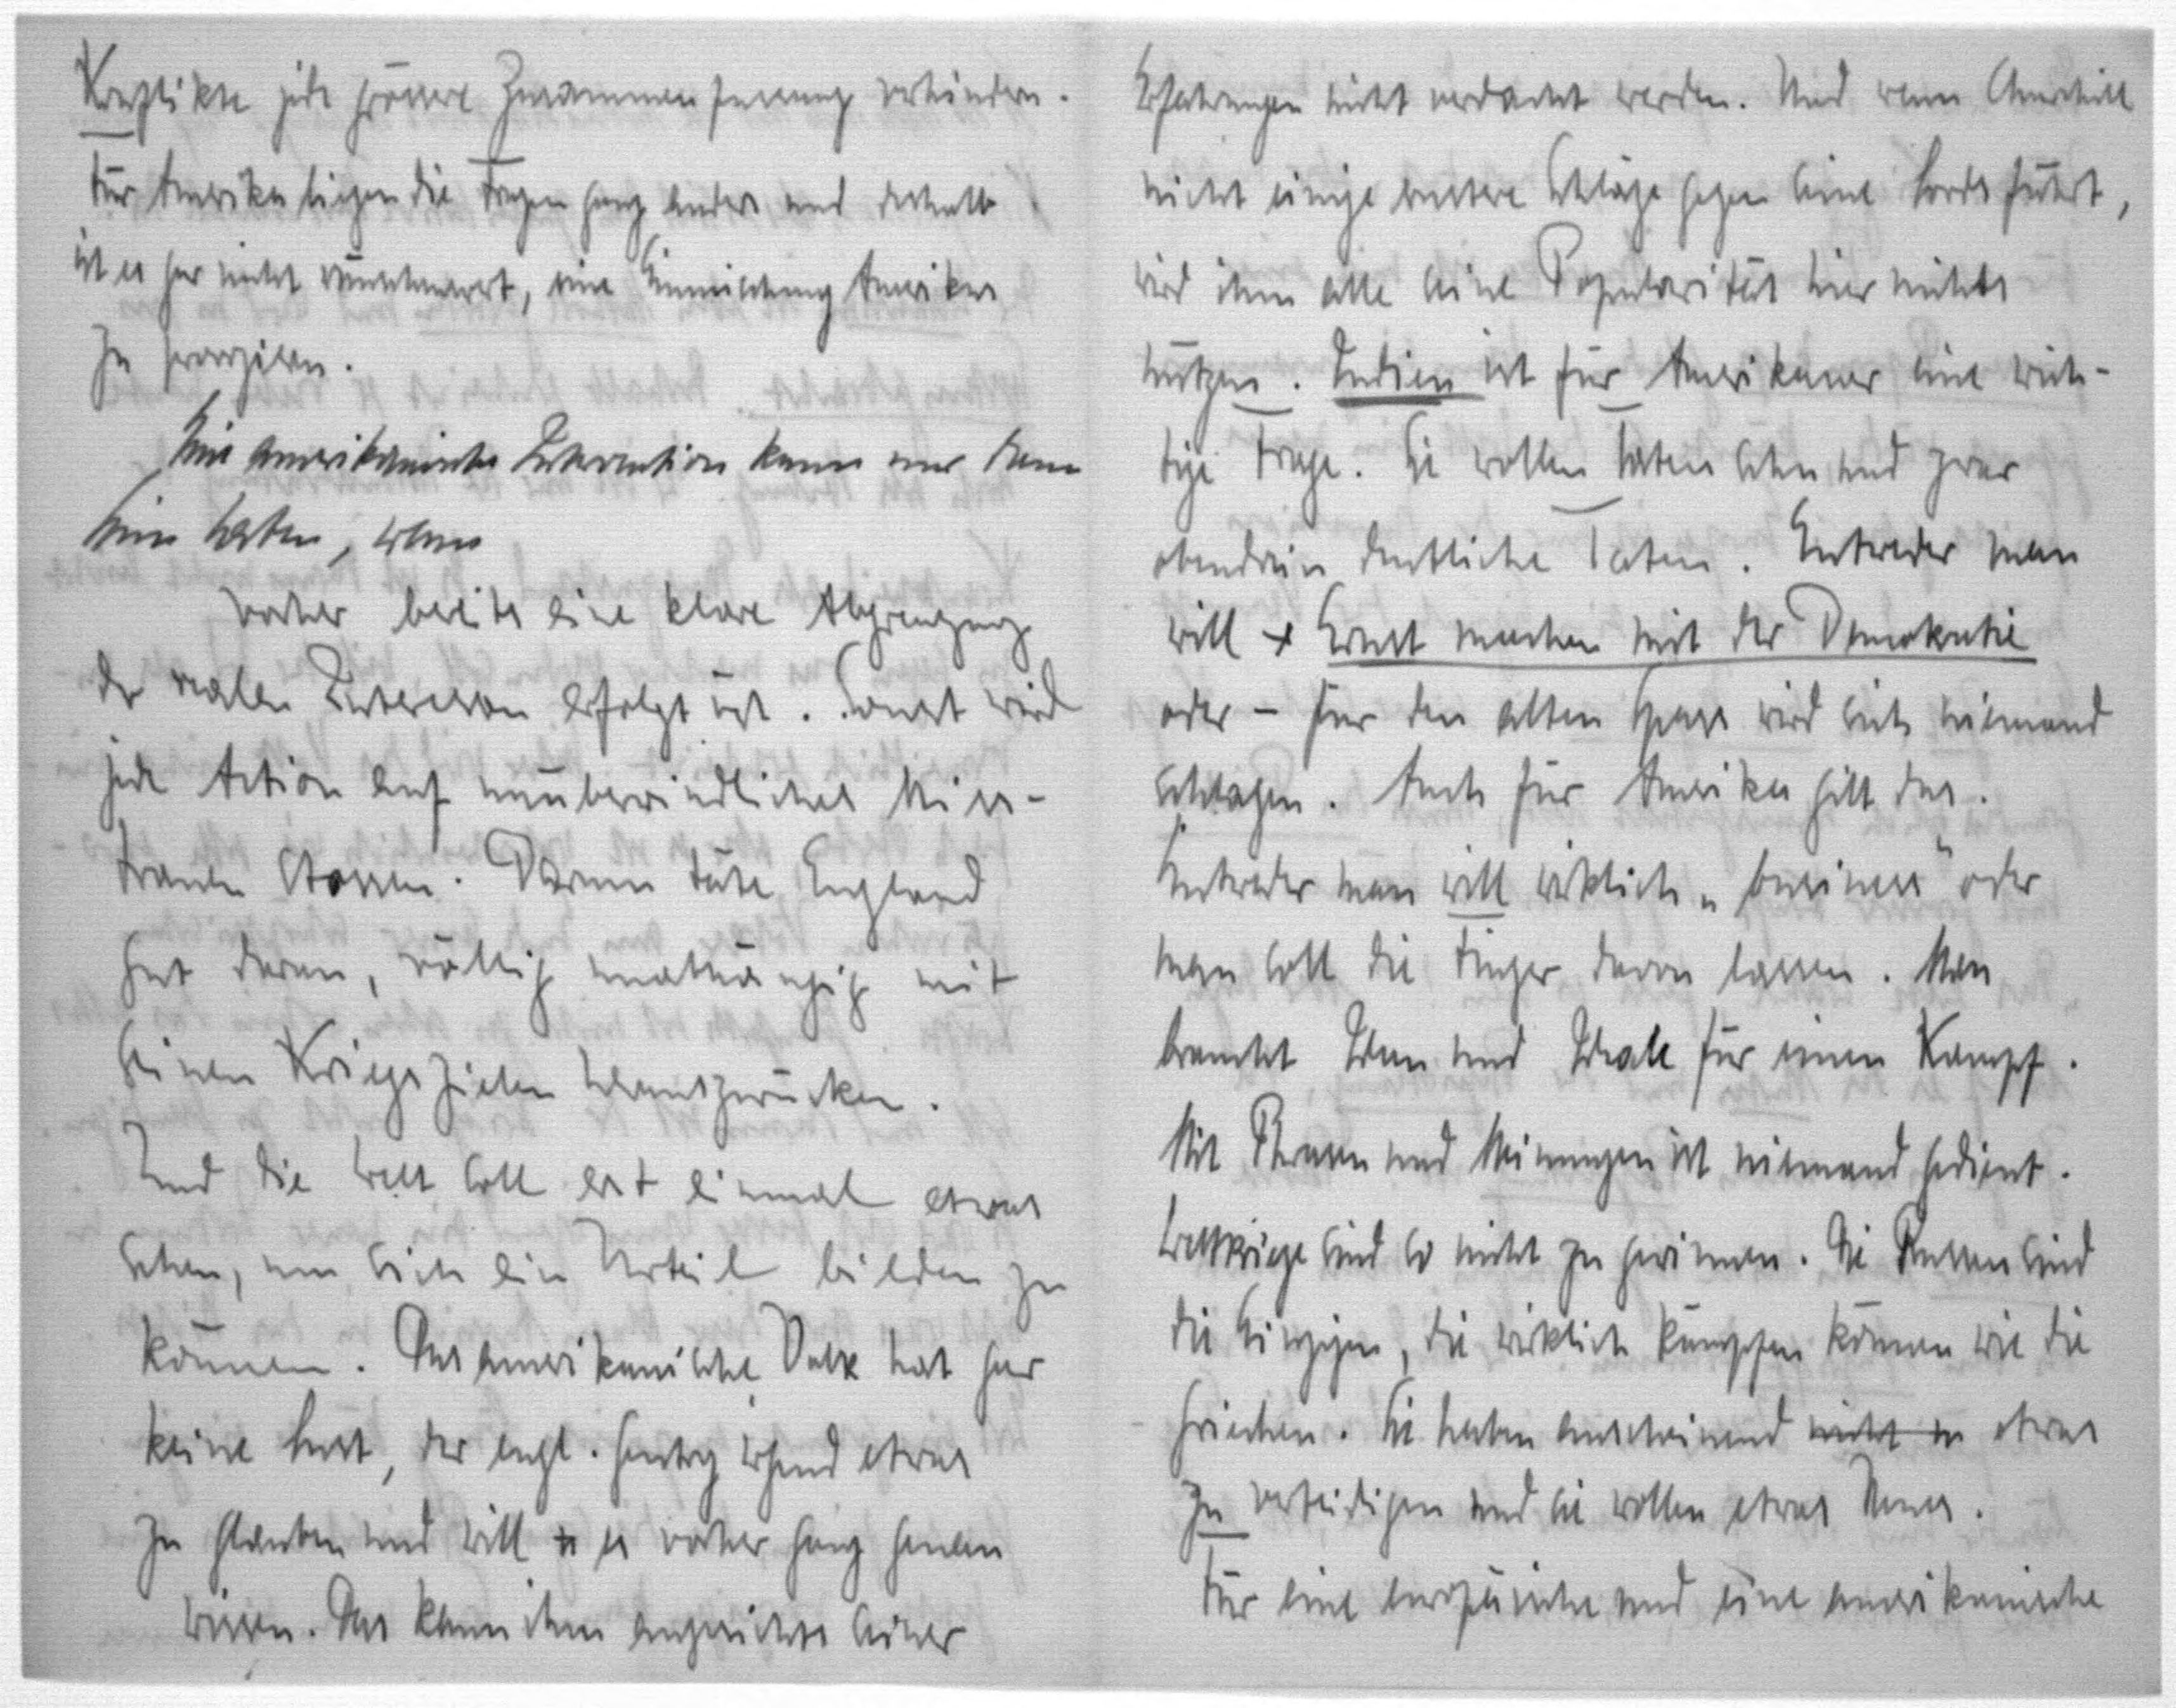 Konflikte jede grössere Zusammenfassung verhindern.
Für Amerika liegen die Fragen ganz anders und deshalb
ist es gar nicht wünschenswert, eine Einmischung Amerikas
zu provozieren.
Eine amerikanische Intervention kann nur dann
Sinn haben, wenn
vorher bereits eine klare Abgrenzung
der realen Interessen erfolgt ist. Sonst wird
jede Aktion auf unüberwindliches Miss-
trauen stossen. Darum täte England
gut daran, völlig unabhängig mit
seinen Kriegszielen herauszurücken.
Und die Welt soll erst einmal etwas
sehen, um sich ein Urteil bilden zu
können. Das amerikanische Volk hat gar
keine Lust, der engl. Gentry irgend etwas
zu glauben und will es vorher ganz genau
wissen. Das kann ihm angesichts seiner
Erfahrungen nicht verdacht werden. Und wenn Churchill
nicht einige weitere Schläge gegen seine Lords führt,
wird ihm alle seine Popularität hier nichts
nützen. Indien ist für Amerikaner eine wich-
tige Frage. Sie wollen Taten sehn und zwar
obendrein deutliche Taten. Entweder man
will Ernst machen mit der Demokratie
oder – für den alten Spass wird sich niemand
schlagen. Auch für Amerika gilt das.
Entweder man will wirklich „business" oder
man soll die Finger davon lassen. Man
braucht Ideen und Ideale für einen Kampf.
Mit Phrasen und Meinungen ist niemand gedient.
Weltkriege sind so nicht zu gewinnen. Die Russen sind
die Einzigen, die wirklich kämpfen können wie die
Griechen. Sie haben anscheinend nicht etwas
zu verteidigen und sie wollen etwas Neues.
Für eine europäische und eine amerikanische